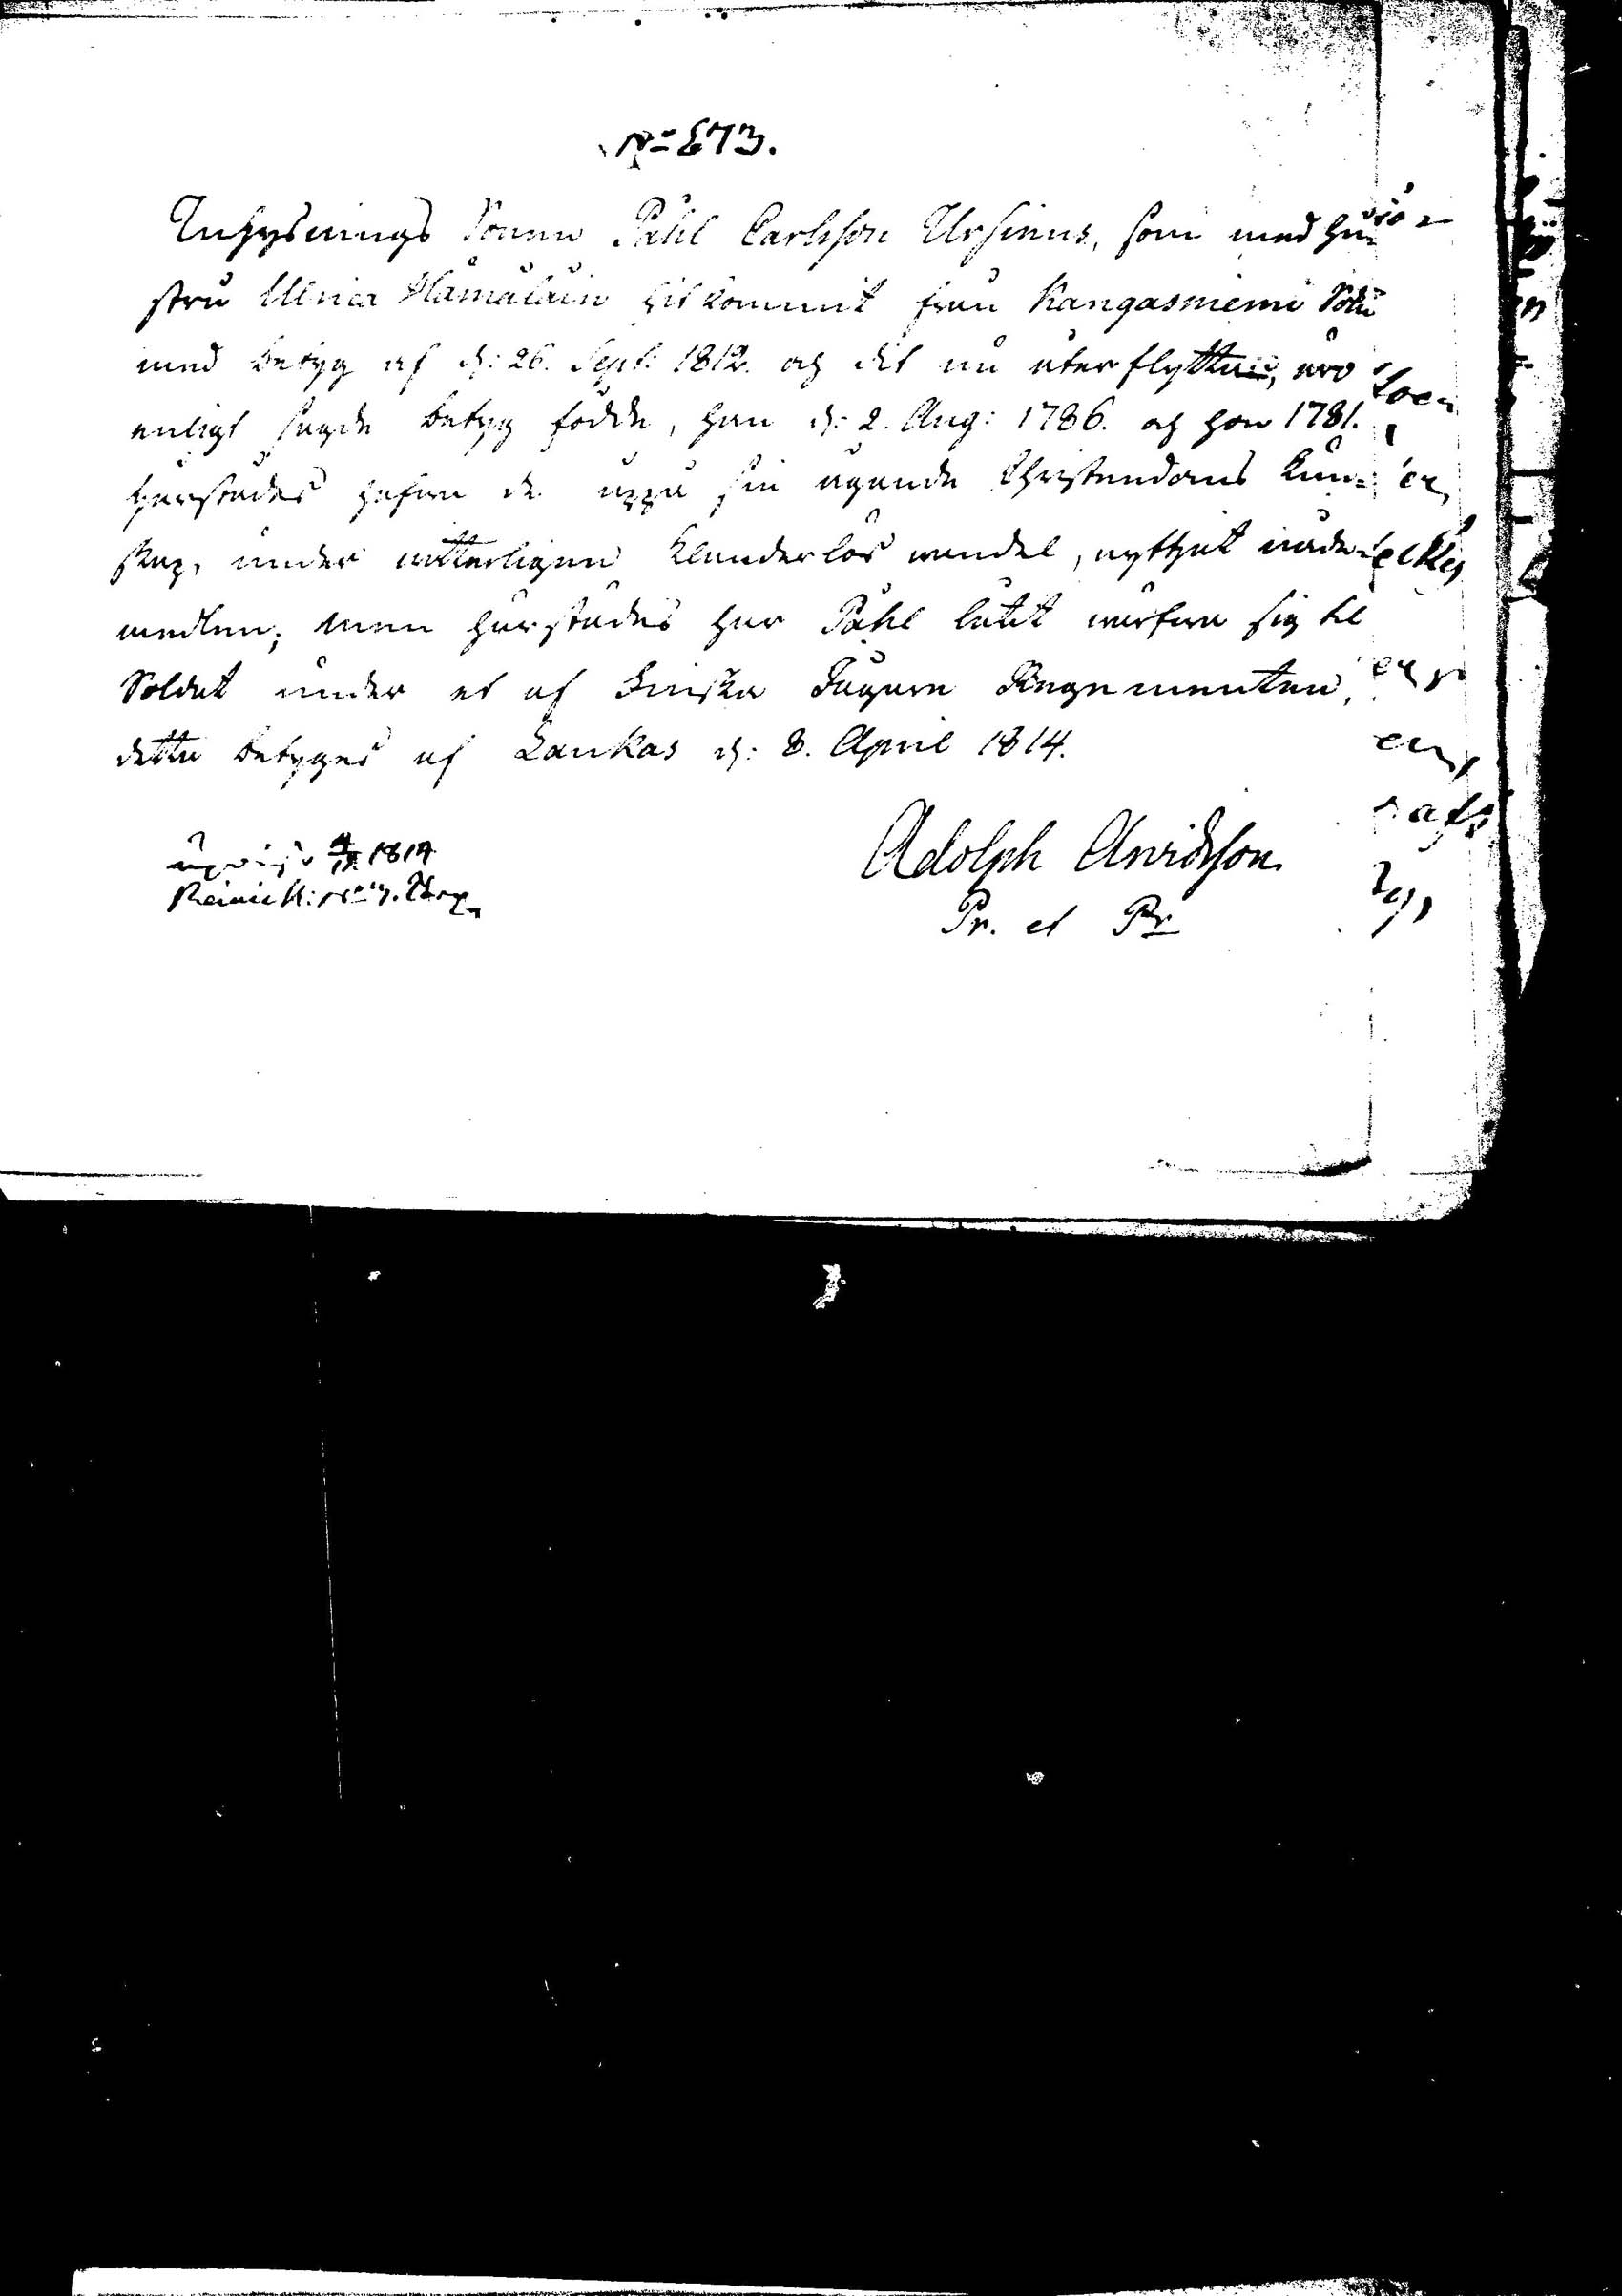 No 673.
Inhysnings Sonen Påhl Carlsson Ursinus, som med hu-
stru Ulrica Hämäläin hit kommit från Kangasniemi Sokn
med betyg af d: 26. Sept: 1812. och dit nu återflytta, äro
enligt sagde betyg födde, han d: 2. Aug: 1786. och hon 1781.
härstädes hafva de uppå sin ägande Christendoms kun-
skap, under witterligen klanderlös wandel, nytjat nåde-
medlen; men härstädes har Påhl låtit wärfwa sig til
Soldat under et af Finska Jägare Regementen,
detta betygas af Laukas d: 8. April 1814.
Adolph Arvidsson
Pr. et Pr
upvist 1814